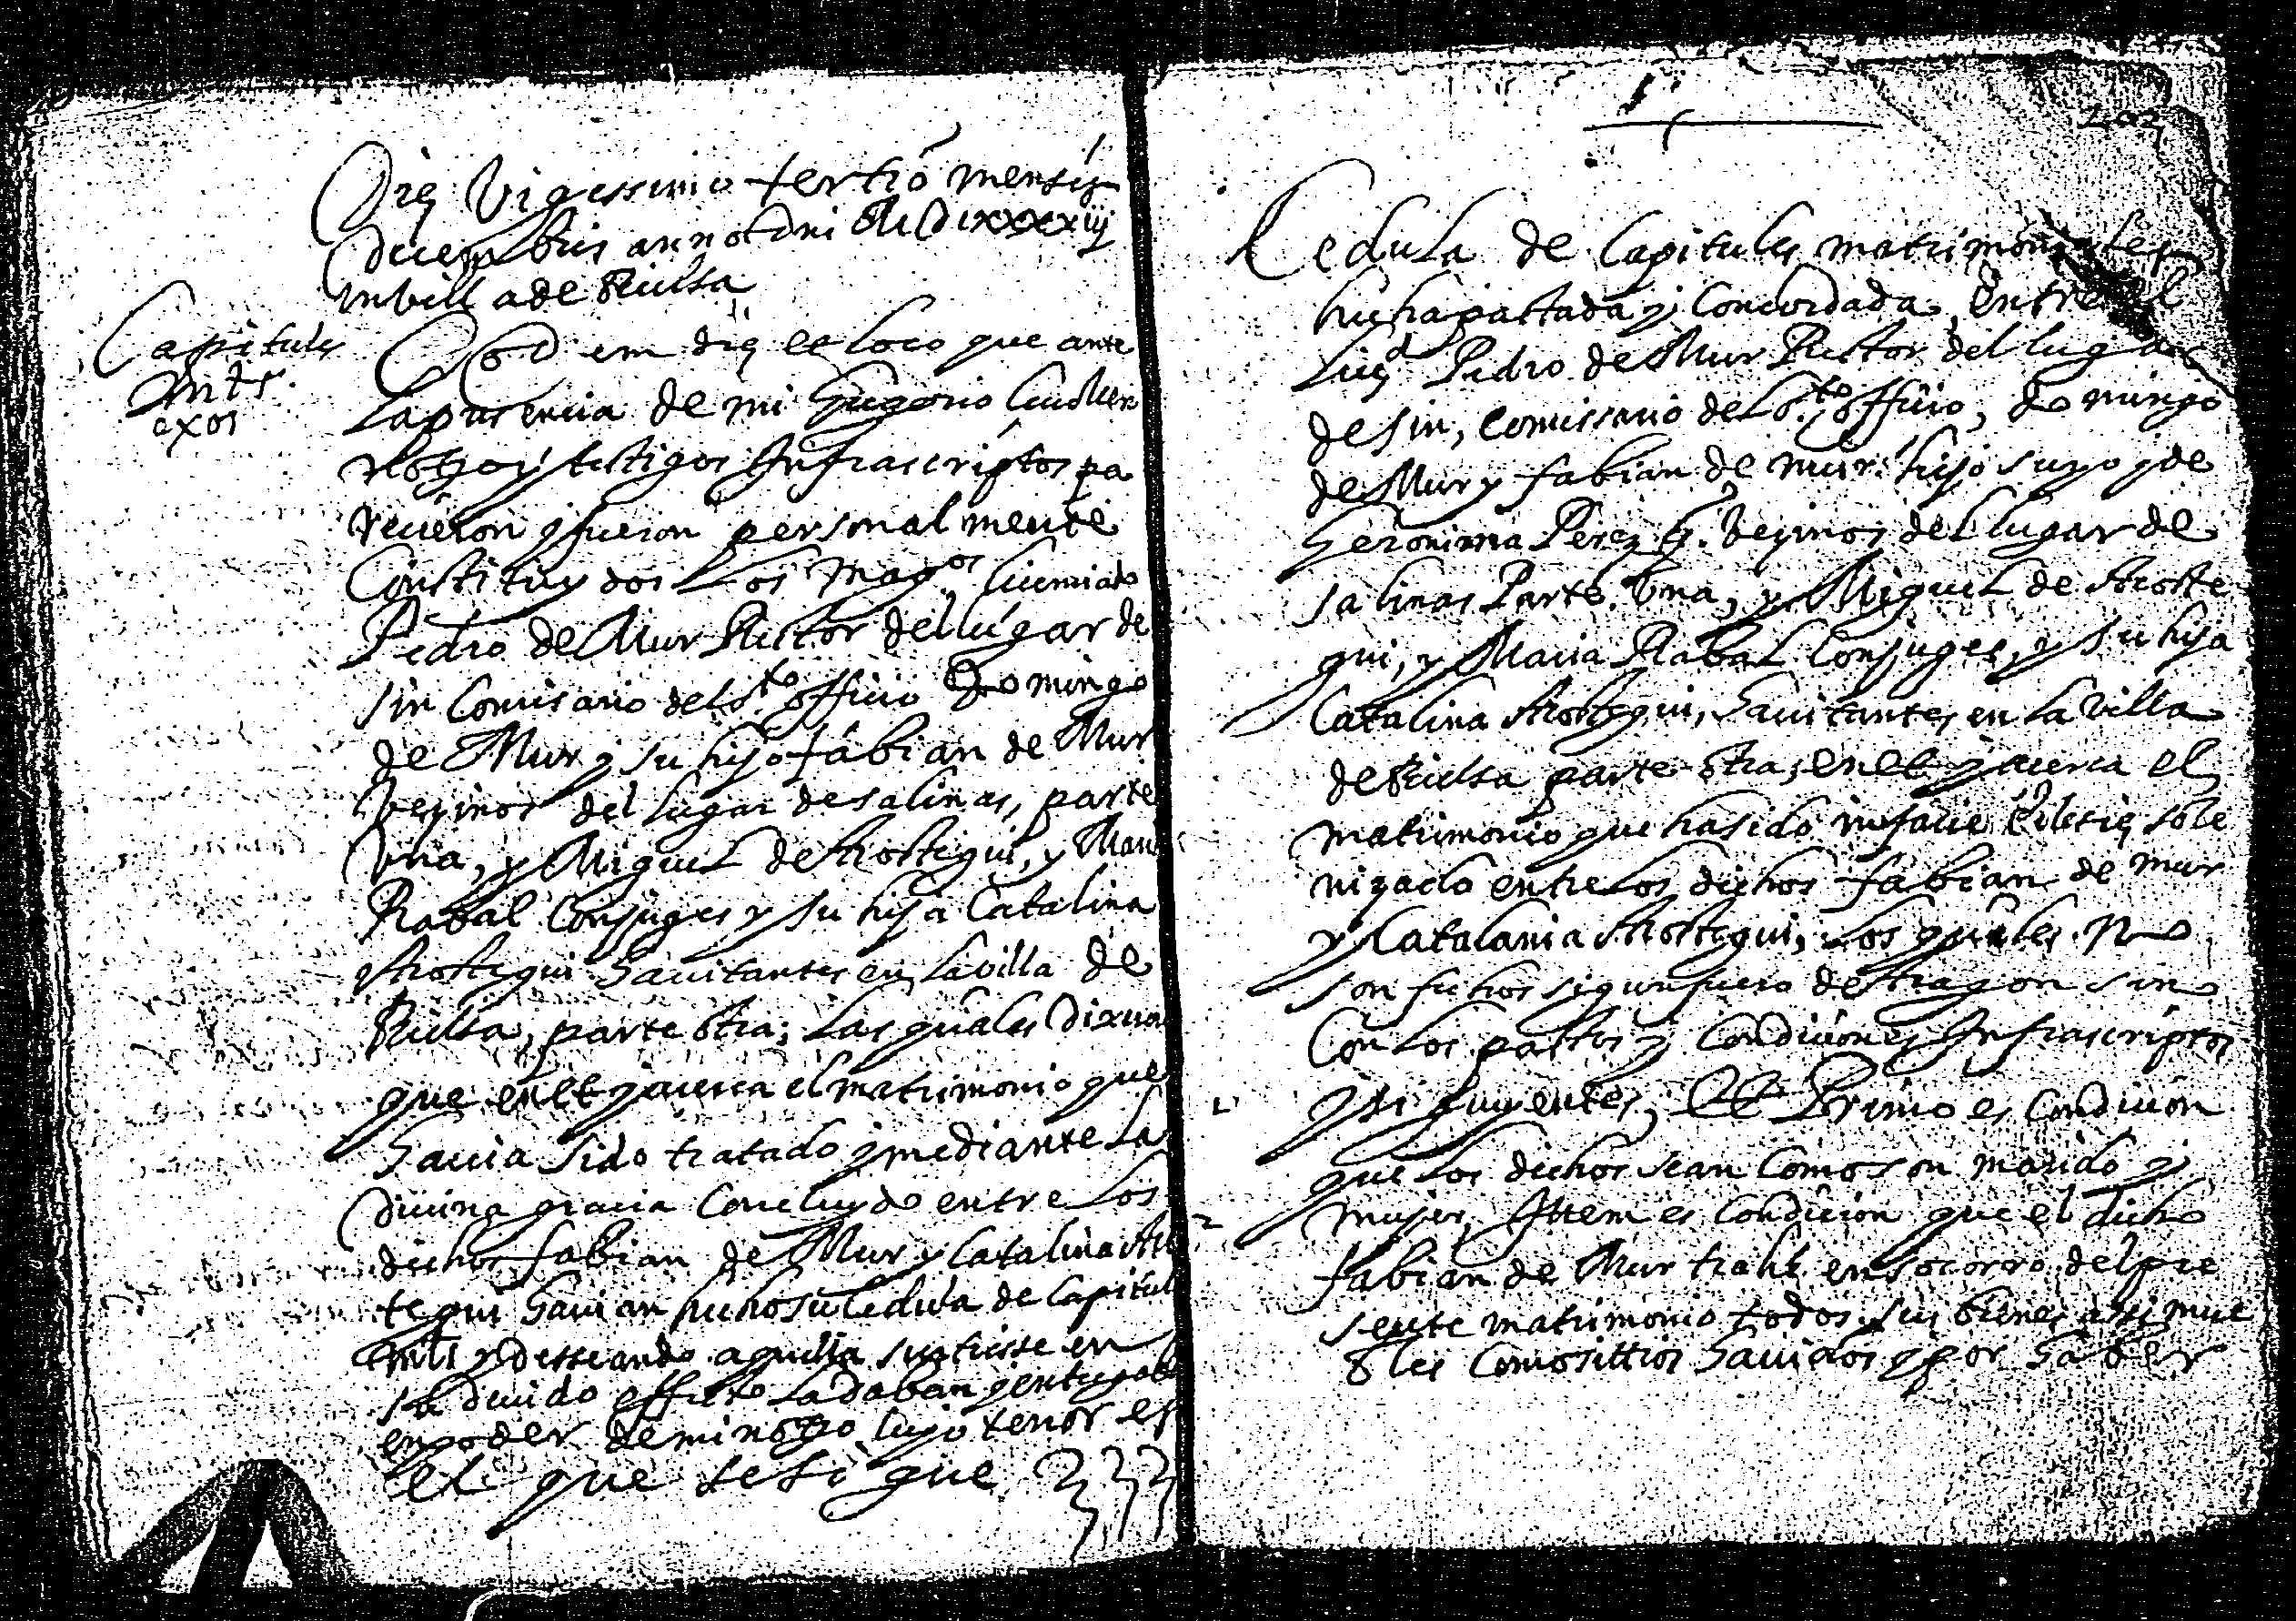 Die Vigessimo tertio mensis
decembris anno dni MDLxxxxiij
in villa de Bielsa
Capitules
mts
exos
Eod em die et loco que ante
La presencia de mi Gregorio
notrio y testigos Infrascriptos pa
recieron y fueron personalmente
Constituydos Los magos licenciado
Pedro de Mur Rector del lugar de
sin Comisario del sto officio Domingo
de Mur y su hijo fabian de Mur
Vezinos del lugar de salinas, parte
Vna, y Miguel de Arostegui, y Maria
Rabal Conjuges y su hija Catalina
Arostegui havitantes en la villa de
Bielsa, parte otra; Las quales dixeron
que en et y acerca el matrimonio que
havia sido tratado y mediante La
divina gracia Concluydo entre Los
dichos fabian de Mur y Catalina Aros
tegui havian hecho su Cedula de Capitules
mts y desseando aquella surtiesse en
su devido effecto La daban y entregaban
en poder de mi notrio cuyo tenor es
el que se sigue
203
Cedula de Capitules matrimoniales
hecha pactada y Concordada, Entre el
Licdo Pedro de Mur Rector del lugar
de sin, Comissario del sto officio, domingo
de Mur y fabian de mur hijo suyo y de
Geronima Perez q. Vezinos del lugar de
salinas Parte Vna, y Miguel de Aroste
gui, y Maria Rabal Conjuges, y su hija
Catalina Arostegui, havitantes en la villa
de Bielsa parte otra, en et y acerca el
matrimonio que ha sido in facie Eclesie sole
nizado entre Los dichos fabian de mur
y Catalania Arostegui, Los quales no
son fechos segun fuero de Aragon sino
Con Los pactos y Condiciones Infrascriptos
1 y siguientes, Et Primo es Condicion
que los dichos sean Como son marido y
2 mujer, Ittem es Condicion que el dicho
fabian de Mur trahe en socorro del pre
sente matrimonio todos sus bienes assi mue
bles Como sittios havidos y por haber